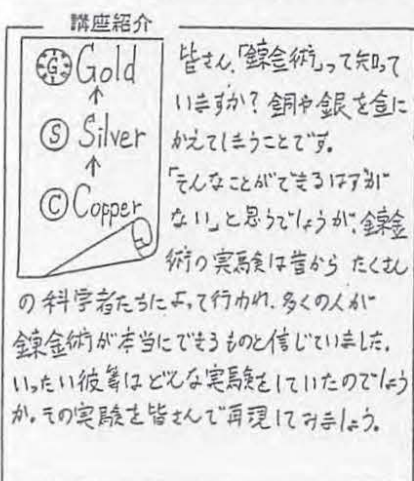 講座紹介
G Gold
↑
S Silver
↑
C Copper
皆さん、「錬金術」って知って
いますか？銅や銀を金に
かえてしまうことです。
「そんなことができるはずが
ない」と思うでしょうが、錬金
術の実験は昔から たくさん
の科学者たちによって行われ、多くの人が
錬金術が本当にできるものと信じていました。
いったい彼等はどんな実験をしていたのでしょう
か。その実験を皆さんで再現してみましょう。